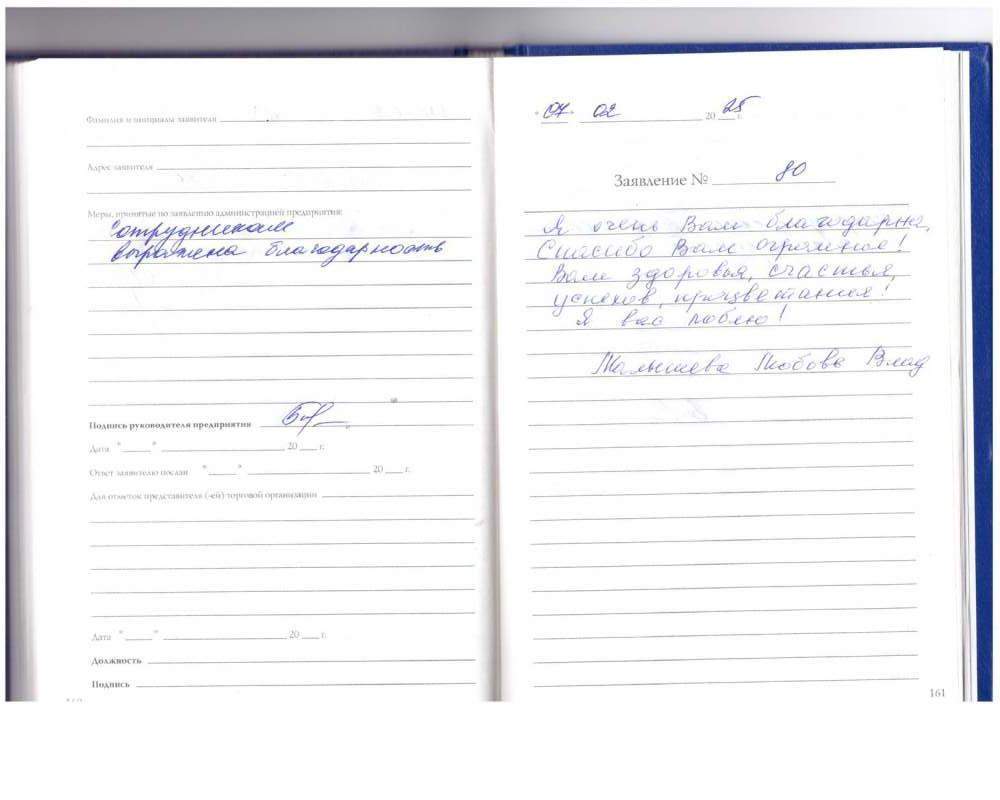 Фамилия и инициалы заявителя
Адрес заявителя
Меры, принятые по заявлению администрацией предприятия:
Сотрудникам
выражена благодарность
Подпись руководителя предприятия
Дата " " 20 г.
Ответ заявителю послан " " 20 г.
Для отметок представителя (-ей) торговой организации
Дата " " 20 г.
Должность
Подпись
160
"07" 02 2025 г.
Заявление № 80
Я очень Вам благодарна,
Спасибо Вам огромное!
Вам здоровья, счастья,
успехов, процветания!
Я вас люблю!
Малышева Любовь Влад
161